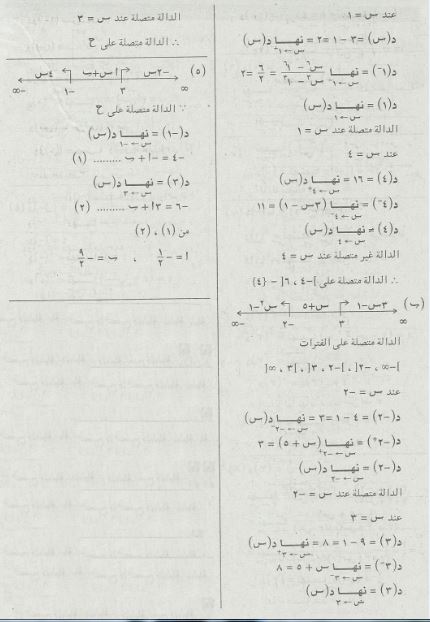 عند س = ١
د(س) = ٣ - ١ = ٢ = نهـــا د(س)
س←١+
د(١-) = نهـــا س٦ - ١٦ / س٣ - ١٣ = ٦/٢ = ٢
س←١-
د(١) = نهـــا د(س)
س←١
الدالة متصلة عند س = ١
عند س = ٤
د(٤) = ١٦ = نهـــا د(س)
س←٤+
د(٤-) = نهـــا (٣س - ١) = ١١
س←٤-
د(٤) ≠ نهـــا د(س)
س←٤
الدالة غير متصلة عند س = ٤
∴ الدالة متصلة على ]-٤ ، ٦[ - {٤}
(ب) س٢-١ س+٥ ٣س-١
-∞ -٢ ٣ ∞
الدالة متصلة على الفترات
]-∞ ، -٢[ ، ]-٢ ، ٣[ ، ]٣ ، ∞[
عند س = -٢
د(-٢) = ٤ - ١ = ٣ = نهـــا د(س)
س←-٢-
د(-٢+) = نهـــا (س + ٥) = ٣
س←-٢+
د(-٢) = نهـــا د(س)
س←-٢
الدالة متصلة عند س = -٢
عند س = ٣
د(٣) = ٩ - ١ = ٨ = نهـــا د(س)
س←٣+
د(٣-) = نهـــا س + ٥ = ٨
س←٣-
د(٣) = نهـــا د(س)
س←٣
الدالة متصلة عند س = ٣
∴ الدالة متصلة على ح
(٥) ٤س اس+ب -٢س
-∞ -١ ٣ ∞
∵ الدالة متصلة على ح
د(-١) = نهـــا د(س)
س←-١
-٤ = -ا + ب ......... (١)
د(٣) = نهـــا د(س)
س←٣
-٦ = ٣ا + ب ......... (٢)
من (١) ، (٢)
ا = -١/٢ ، ب = -٩/٢